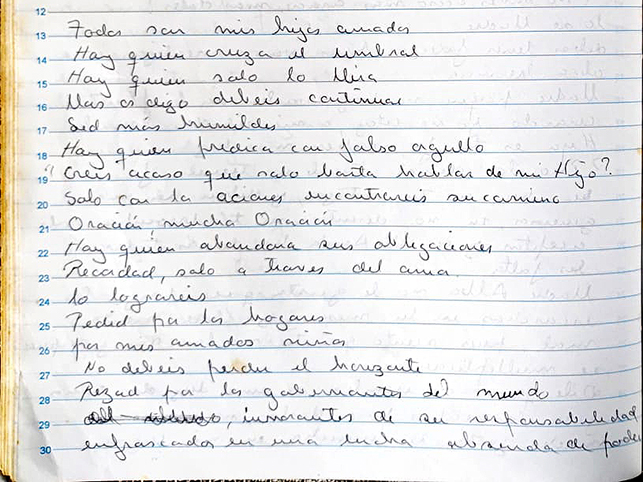 12
13 Todos son mis hijos amados
14 Hay quien cruza el umbral
15 Hay quien solo lo Mira
16 Mas os digo debeis continuar
17 Sed más humildes
18 Hay quien predica con falso orgullo
19 "Creis acaso que solo basta hablar de mi Hijo?
20 Solo con la aciones encontrareis su camino
21 Oración, mucha Oración
22 Hay quien abandona sus obligaciones
23 Recordad, solo a traves del amor
24 lo lograreis
25 Pedid por los hogares
26 por mis amados niños
27 No debeis perder el horizonte
28 Rezad por los gobernantes del mundo
29 , ignorantes de su responsabilidad
30 enfrascados en una lucha absurda de poder